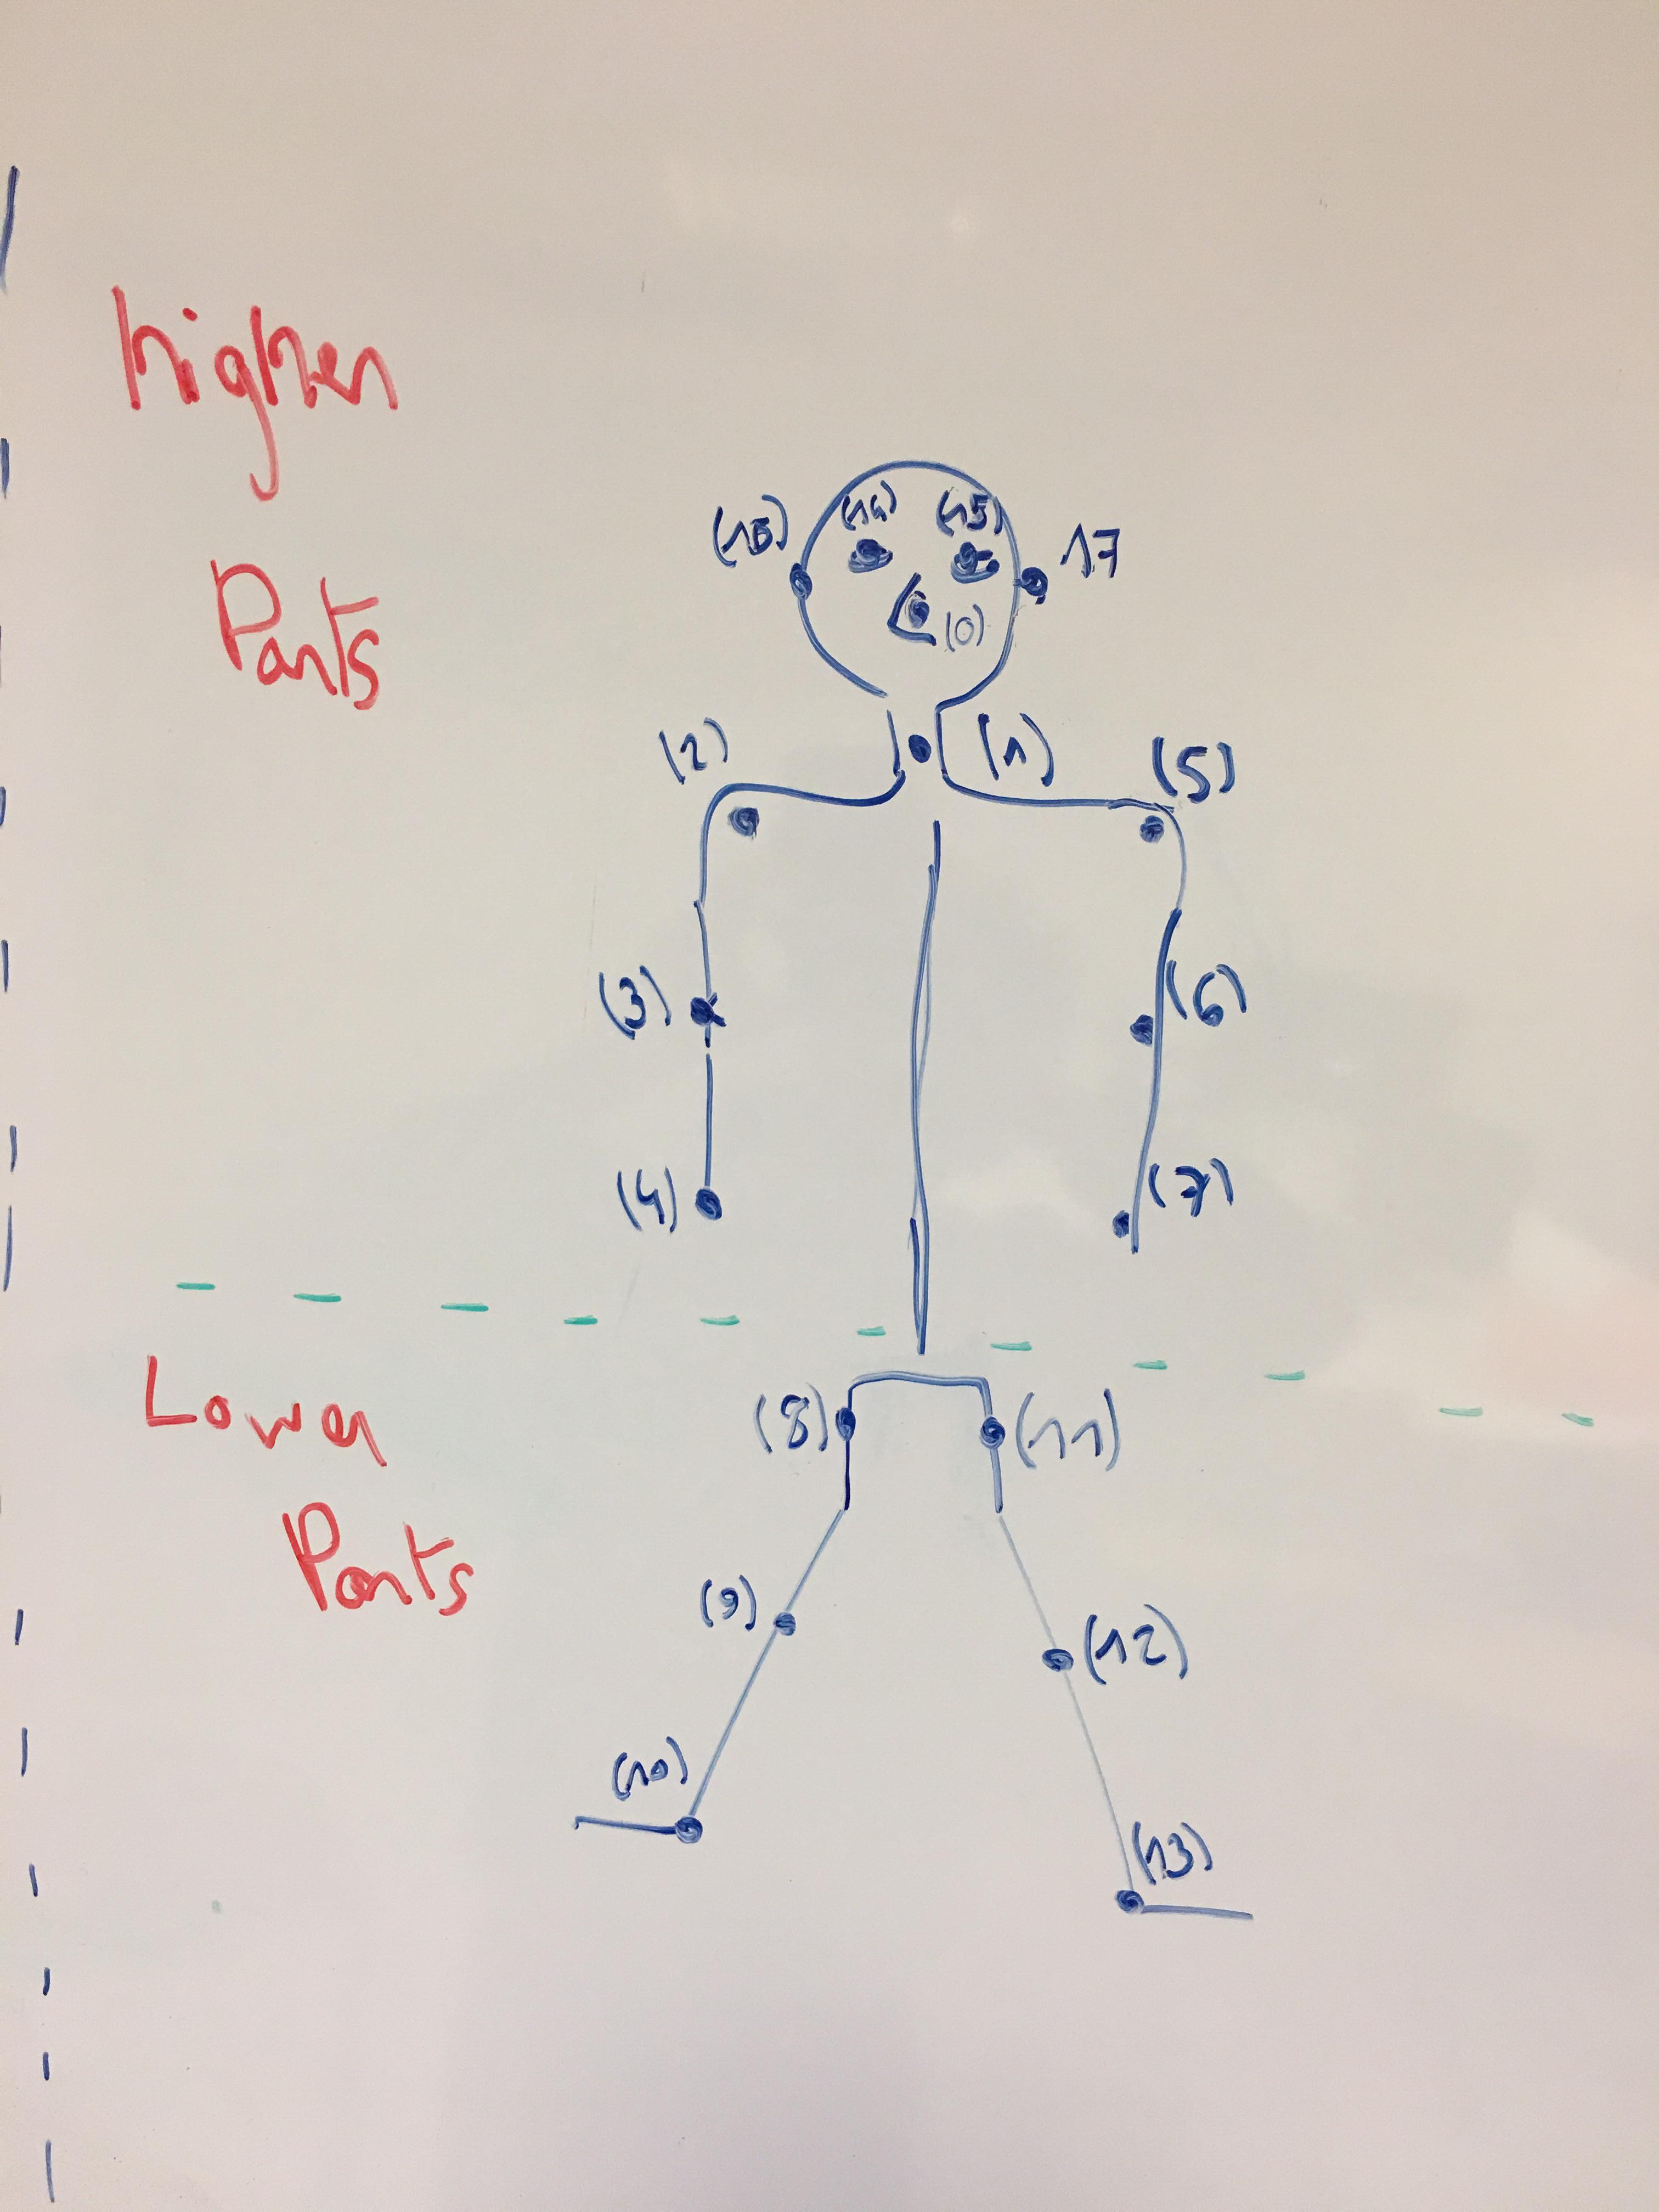 higher
Parts
(14) (15)
(16) 17
(0)
(2) (1) (5)
(3) (6)
(4) (7)
Lower
Parts
(8) (11)
(9) (12)
(10)
(13)